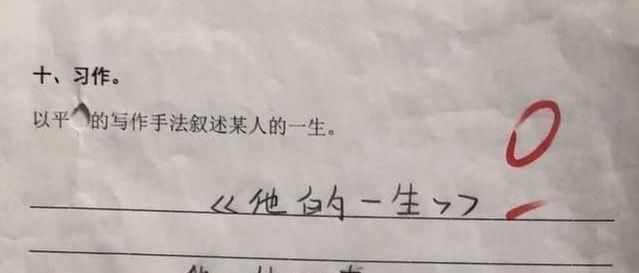 十、习作。
以平 的写作手法叙述某人的一生。
0
《他的一生》